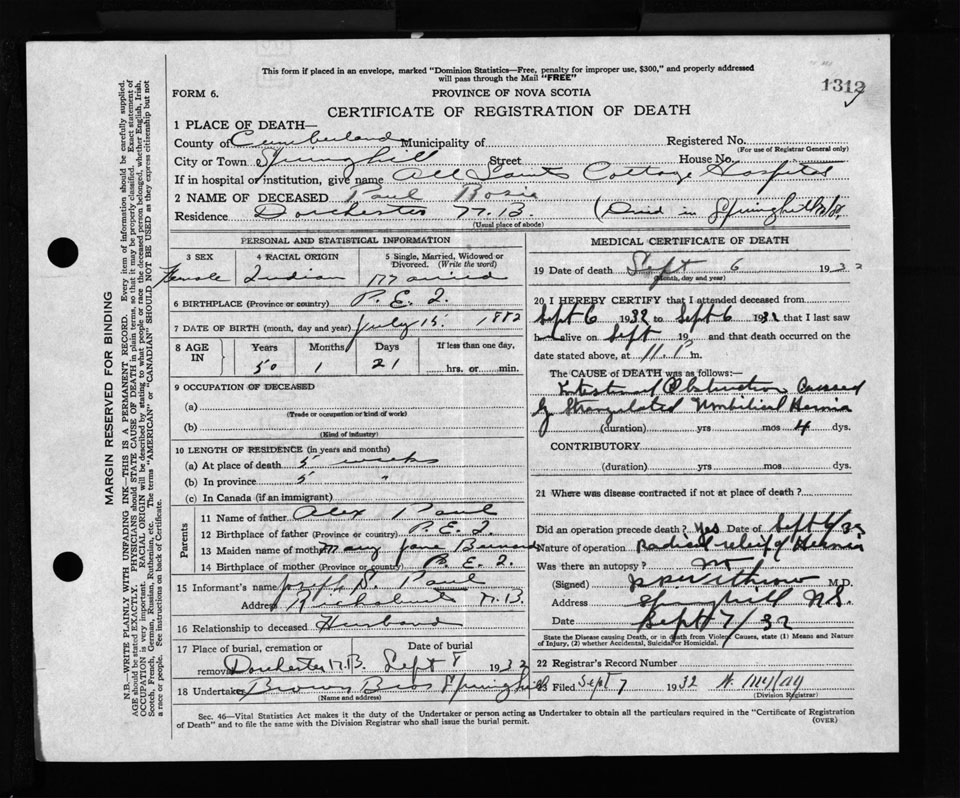 This form if placed in an envelope, marked "Dominion Statistics—Free, penalty for improper use, $300," and properly addressed
will pass through the Mail "FREE"
1312
FORM 6.
PROVINCE OF NOVA SCOTIA
CERTIFICATE OF REGISTRATION OF DEATH
1 PLACE OF DEATH—
County of Cumberland Municipality of Registered No.
(For use of Registrar General only)
City or Town Springhill Street House No.
If in hospital or institution, give name All Saints Cottage Hospital
2 NAME OF DECEASED Paul Rosie
Residence Dorchester N.B. (Died in Springhill
(Usual place of abode)
PERSONAL AND STATISTICAL INFORMATION
3 SEX 4 RACIAL ORIGIN 5 Single, Married, Widowed or
Divorced. (Write the word)
Female Indian Married
6 BIRTHPLACE (Province or country) P.E.I.
7 DATE OF BIRTH (month, day and year) July 15. 1882
8 AGE IN Years Months Days If less than one day,
50 1 21 hrs. or min.
9 OCCUPATION OF DECEASED
(a)
(Trade or occupation or kind of work)
(b)
(Kind of industry)
10 LENGTH OF RESIDENCE (in years and months)
(a) At place of death 5 weeks
(b) In province 5 "
(c) In Canada (if an immigrant)
Parents
11 Name of father Alex Paul
12 Birthplace of father (Province or country) P.E.I.
13 Maiden name of mother Mary Jane Bernard
14 Birthplace of mother (Province or country) P.E.I.
15 Informant's name Joseph Paul
Address N.B
16 Relationship to deceased Husband
17 Place of burial, cremation or Date of burial
removal Dorchester N.B. Sept 8 1932
18 Undertaker Brown Bros Springhill
(Name and address)
MEDICAL CERTIFICATE OF DEATH
19 Date of death Sept 6 1932
(Month, day and year)
20 I HEREBY CERTIFY that I attended deceased from
Sept 6 1932 to Sept 6 1932 that I last saw
h alive on Sept 19 and that death occurred on
date stated above, at 11. P m.
The CAUSE OF DEATH was as follows:—
Intestinal Obstruction Caused
by Strangulated Umbilical Hernia
(duration) yrs mos 4 dys.
CONTRIBUTORY
(duration) yrs mos dys.
21 Where was disease contracted if not at place of death?
Did an operation precede death? Yes Date of Sept 6/32
Nature of operation Radical relief of Hernia
Was there an autopsy?
(Signed) M.D.
Address Springhill N.S.
Date Sept 7/32
State the Disease causing Death, or in death from Violent Causes, state (1) Means and Nature
of Injury, (2) whether Accidental, Suicidal or Homicidal.
22 Registrar's Record Number
23 Filed Sept 7 1932
(Division Registrar)
Sec. 46—Vital Statistics Act makes it the duty of the Undertaker or person acting as Undertaker to obtain all the particulars required in the "Certificate of Registration
of Death" and to file the same with the Division Registrar who shall issue the burial permit.
(OVER)
MARGIN RESERVED FOR BINDING
N.B.—WRITE PLAINLY WITH UNFADING INK—THIS IS A PERMANENT RECORD. Every item of information should be carefully supplied.
AGE should be stated EXACTLY. PHYSICIANS should STATE CAUSE OF DEATH in plain terms, so that it may be properly classified. Exact statement of
OCCUPATION is very important. RACIAL ORIGIN will be described by stating to what people or race the deceased person belonged, whether English, Irish,
Scotch, French, German, Russian, Ruthenian, etc. The terms "AMERICAN" or "CANADIAN" SHOULD NOT BE USED as they express citizenship but not
a race or people. See instructions on back of Certificate.